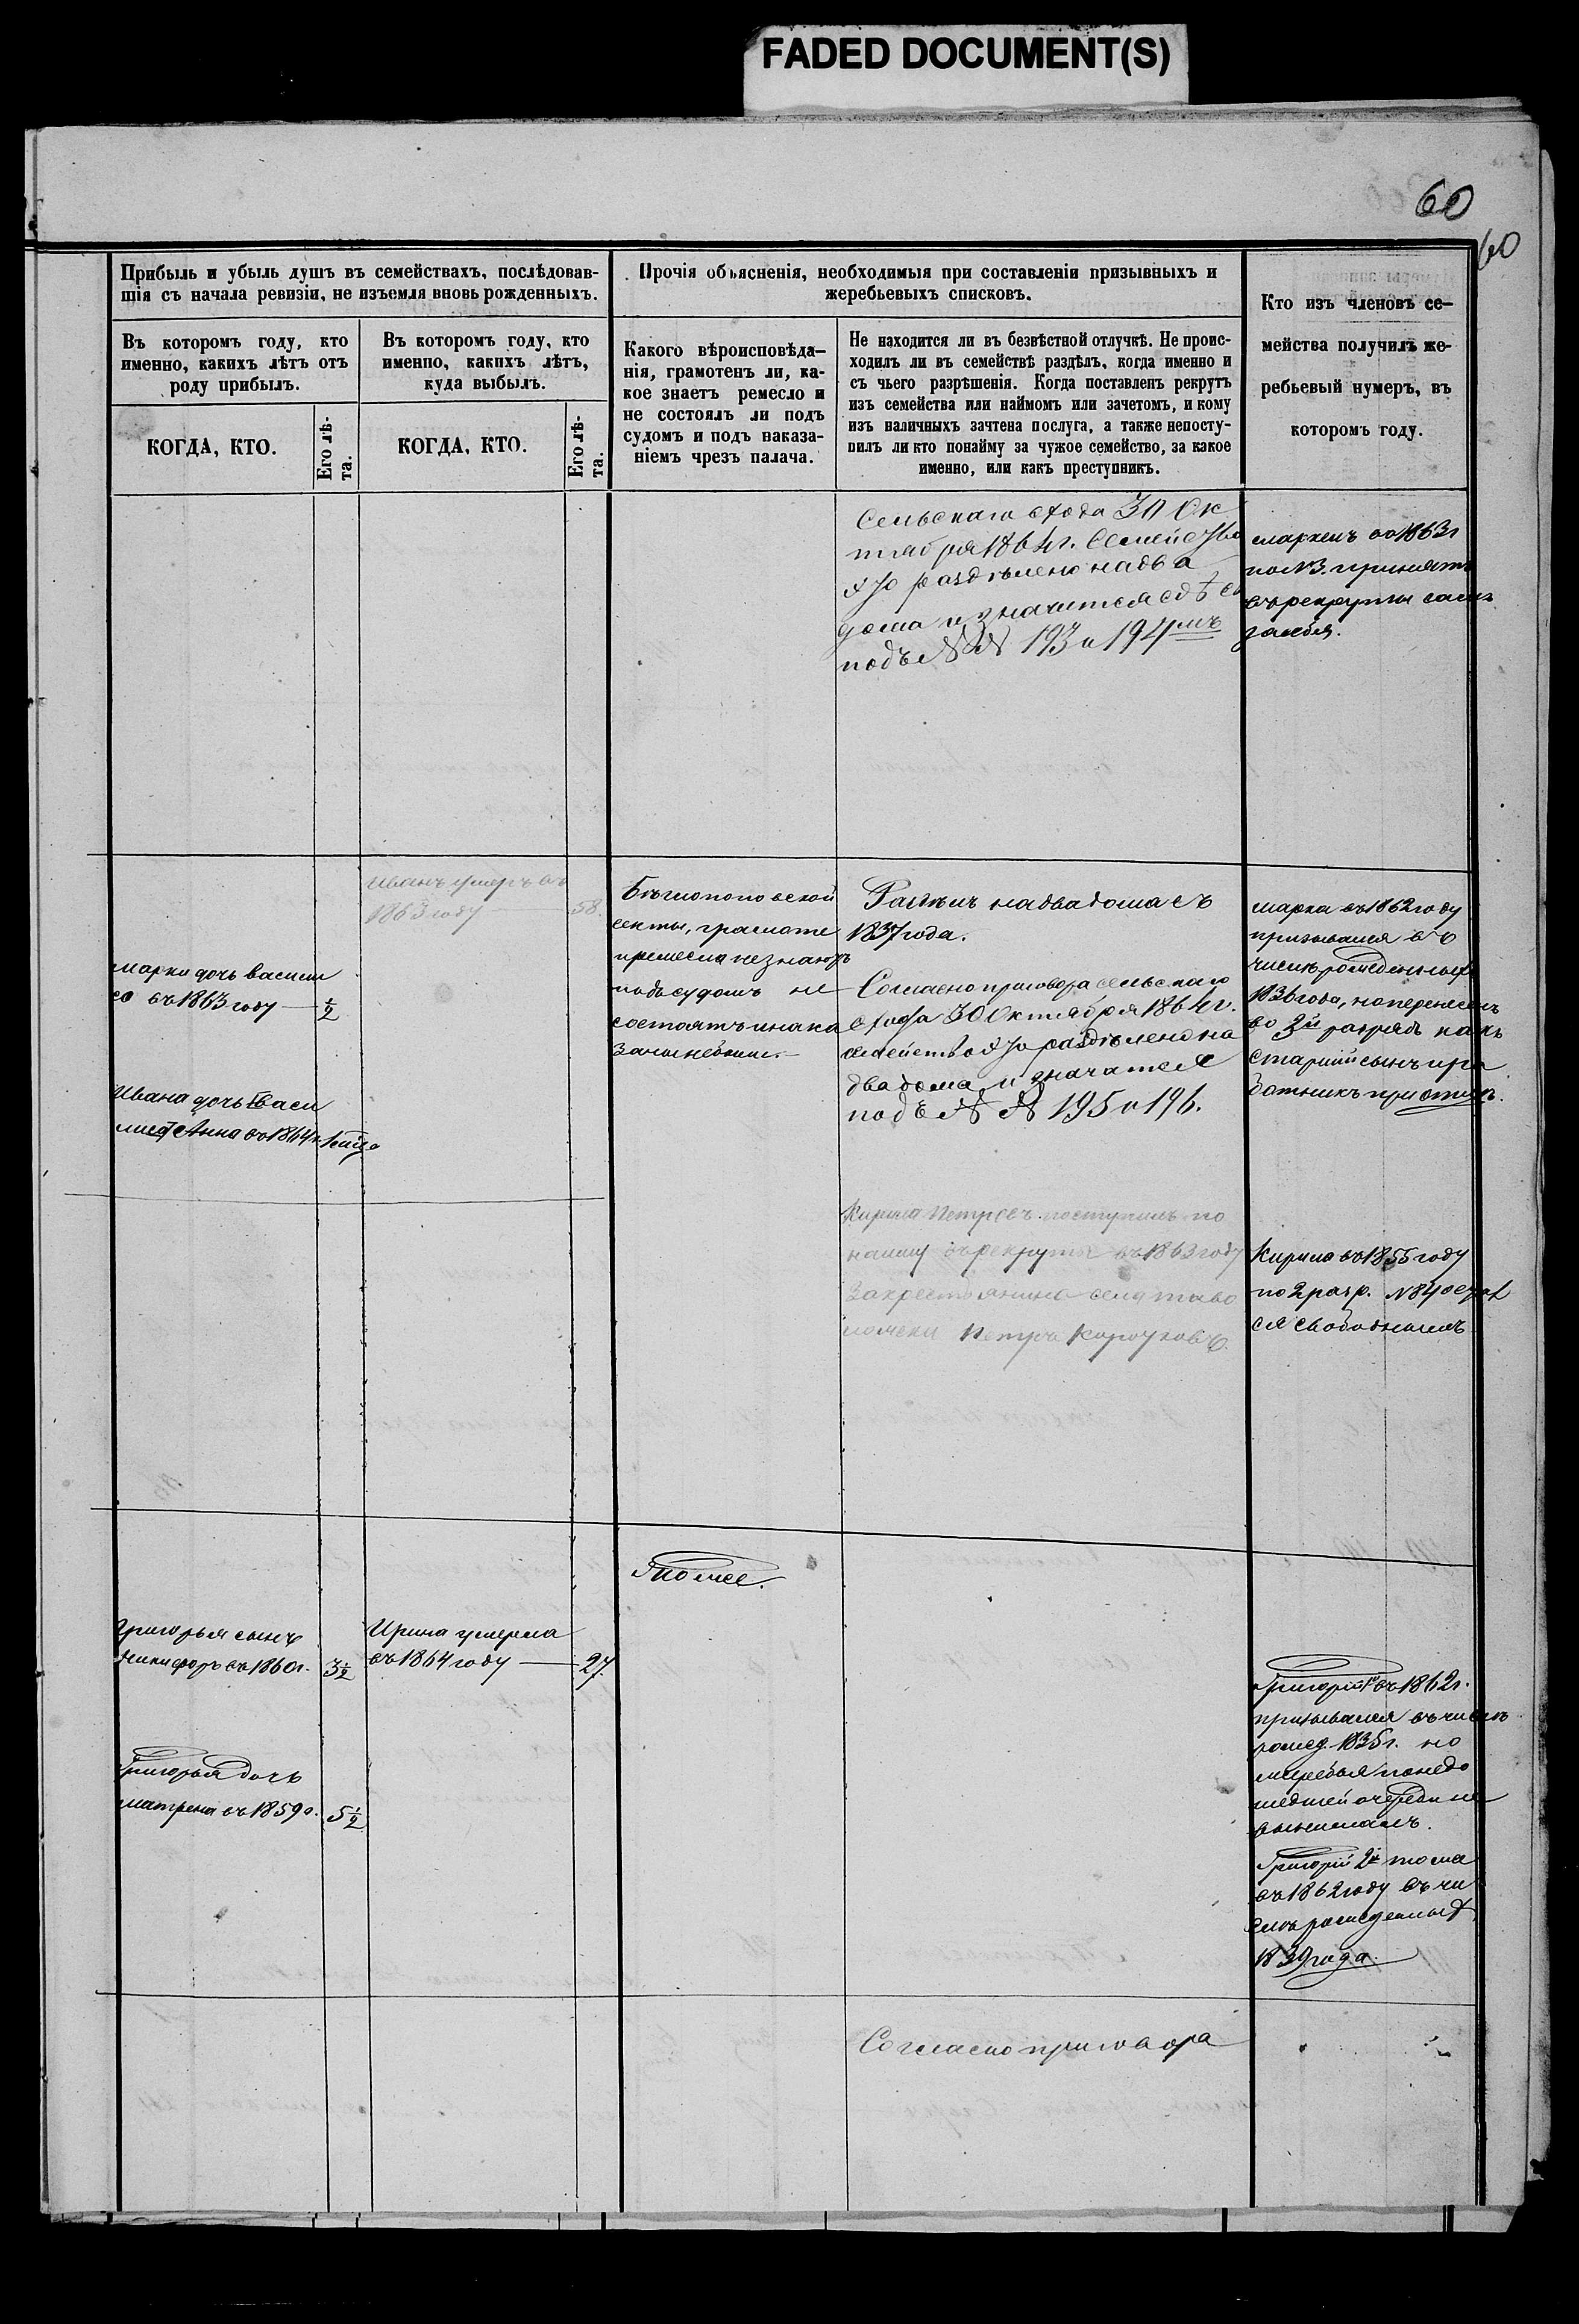 FADED DOCUMENT(S)
60
60
Прибыль и убыль душъ въ семействахъ, послѣдовав-
шія съ начала ревизіи, не изъемля вновь рожденныхъ.
Въ которомъ году, кто
именно, какихъ лѣтъ отъ
роду прибылъ.
КОГДА, КТО.
Его лѣ-
та.
Въ которомъ году, кто
именно, какихъ лѣтъ,
куда выбылъ.
КОГДА, КТО.
Его лѣ-
та.
Прочія объясненія, необходимыя при составленіи призывныхъ и
жеребьевыхъ списковъ.
Какого вѣроисповѣда-
нія, грамотенъ ли, ка-
кое знаетъ ремесло и
не состоялъ ли подъ
судомъ и подъ наказа-
ніемъ чрезъ палача.
Не находится ли въ безвѣстной отлучкѣ. Не проис-
ходилъ ли въ семействѣ раздѣлъ, когда именно и
съ чьего разрѣшенія. Когда поставленъ рекрутъ
изъ семейства или наймомъ или зачетомъ, и кому
изъ наличныхъ зачтена послуга, а также непосту-
пилъ ли кто понайму за чужое семейство, за какое
именно, или какъ преступникъ.
Кто изъ членовъ се-
мейства получилъ же-
ребьевый нумеръ, въ
которомъ году.
Сельскаго схода 30 Ок
тября 1864 г. Семейство
это раздѣлено на два
дома и значится
подъ №№ 193 и 194мъ
въ 1863 г
по №3. принятъ
въ рекруты самъ
за себя.
Иванъ умеръ въ
1863 году 58.
Бѣглопоповской
секты, грамоте
и ремесла незнаютъ
подъ судомъ не
состоятъ и нака
заны небыли.
на два дома съ
1837 года.
Согласно приговора сельскаго
схода 30 Октября 1864 г.
семейство это раздѣлено на
два дома и значатся
подъ №№ 195 и 196.
Марка въ 1862 году
призывался въ
числѣ рожденныхъ
1836 года, но перенесенъ
во 2й разрядъ какъ
старшій сынъ и ра
ботникъ при отцѣ.
Марки дочь Васили
са въ 1863 году ½
Ивана дочь Васи
Анна въ 1864 г.
Кирила Петровъ поступилъ по
найму въ рекруты въ 1863 году
за крестьянина села
Петра
Кирила въ 1855 году
по 2 разр. №84 остал
ся свободнымъ
Тоже.
Григорья сынъ
Никифоръ въ 1860 г. 3½
Ирина умерла
въ 1864 году 27.
Григорья дочь
Матрена въ 1859 г. 5½
Григорій 1й въ 1862 г.
призывался въ числѣ
рожд. 1835 г. но
жеребья по недо
шедшей очереди не
вынималъ.
Григорій 2й тоже
въ 1862 году въ чи
слѣ рожденныхъ
1839 года.
Согласно приговора